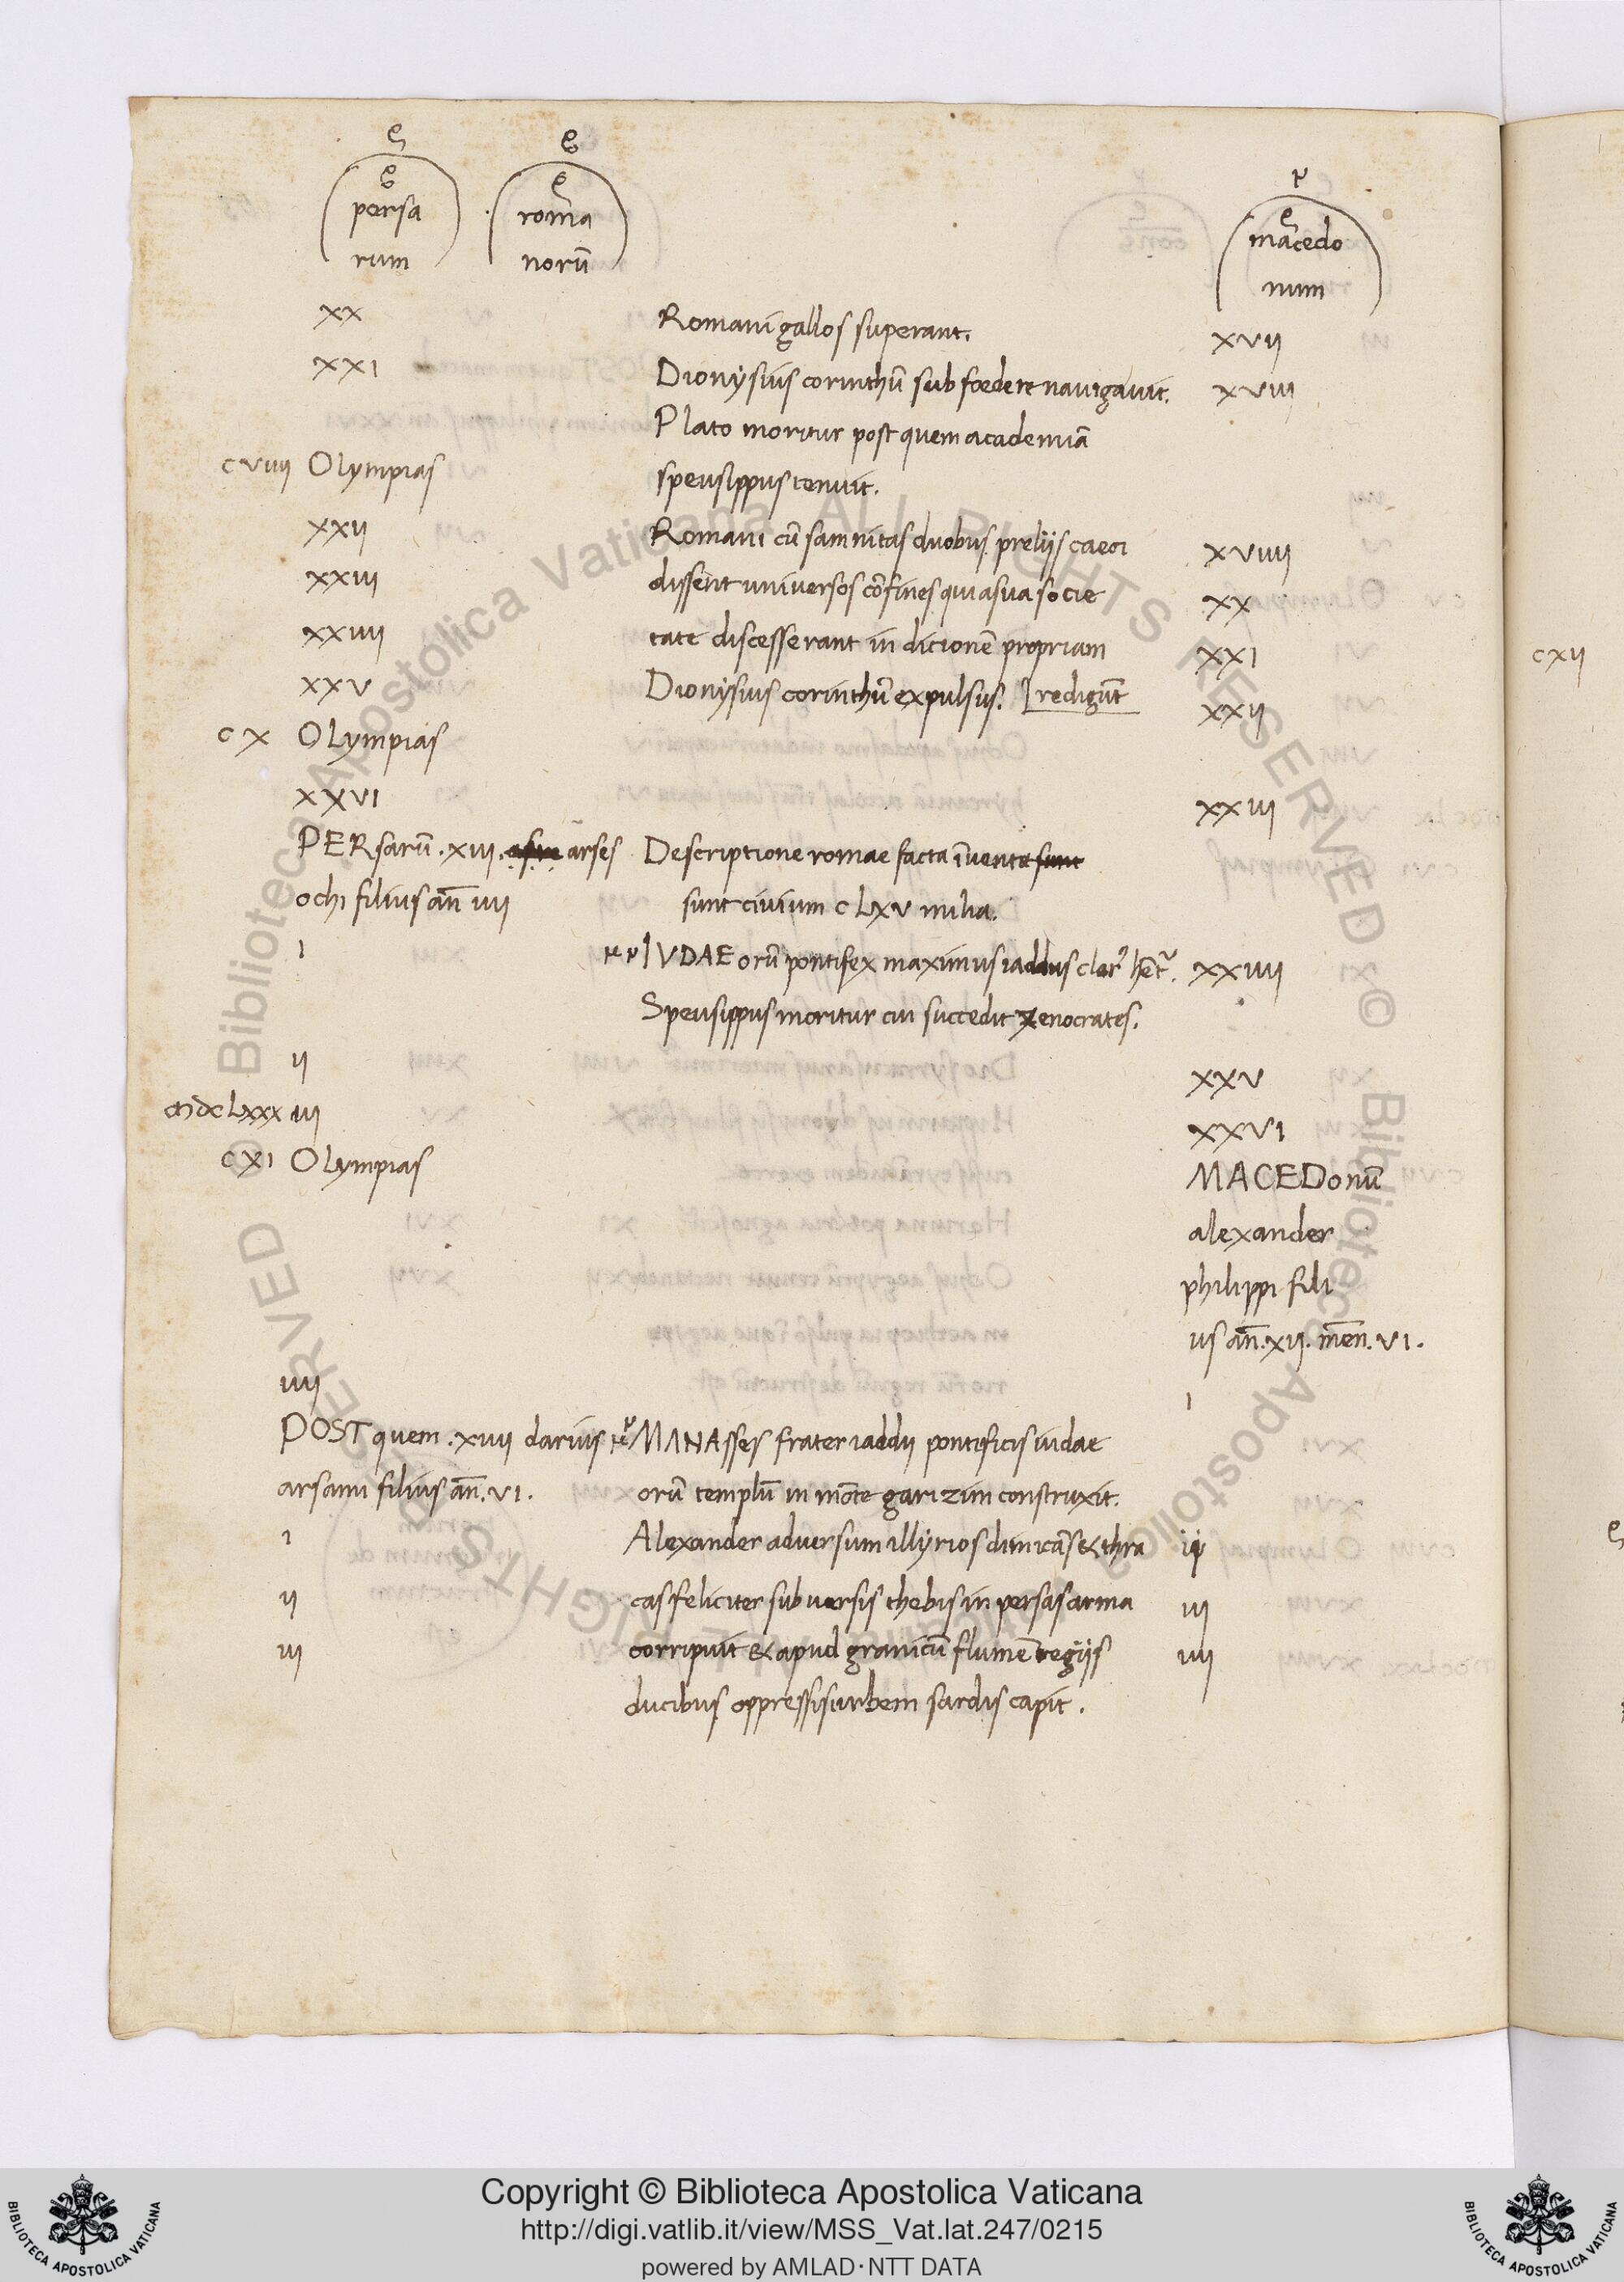 persa
rum
romā
norū
macedo
num
xx Romani gallos superant. xvii
xxi Dionysius corinthū sub foedere navigavit. xviii
Plato moritur post quem academiā
cviiii Olympias speusippus tenuit.
xxii Romani cū samnitas duobus preliis caeci xviiii
xxiii dissent universos cōfines qui a sua socie xx
xxiiii tate discesserant in dicionē propriam xxi
cxii
xxv Dionysius corinthū expulsus. [redigūt xxii
cx OLympias
xxvi xxiii
PERsarū .xiii. arses Descriptione romae facta īventa sunt
ochi filius añ iiii sunt civium cLxv milia.
i IVDAEorū pontifex maximus iaddus clar hēt. xxiiii
Speusippus moritur cui succedit xenocrates.
ii xxv
mdcLxxx iii xxvi
cxi OLympias MACEDonū
alexander
philippi fili
us añ. xii. mēn. vi.
iiii i
POST quem .xiiii darius MANAsses frater iaddi pontificis iudae
arsami filius añ. vi. orū templū in mōte garizim construxit.
i Alexander adversum illyrios dimicās & thra ii
ii cas feliciter subversis thebis in persas arma iii
iii corripuit & apud granicū flumē regiis iiii
ducibus oppressis urbem sardis capit.
Copyright © Biblioteca Apostolica Vaticana
http://digi.vatlib.it/view/MSS_Vat.lat.247/0215
powered by AMLAD·NTT DATA
BIBLIOTECA APOSTOLICA VATICANA
BIBLIOTECA APOSTOLICA VATICANA